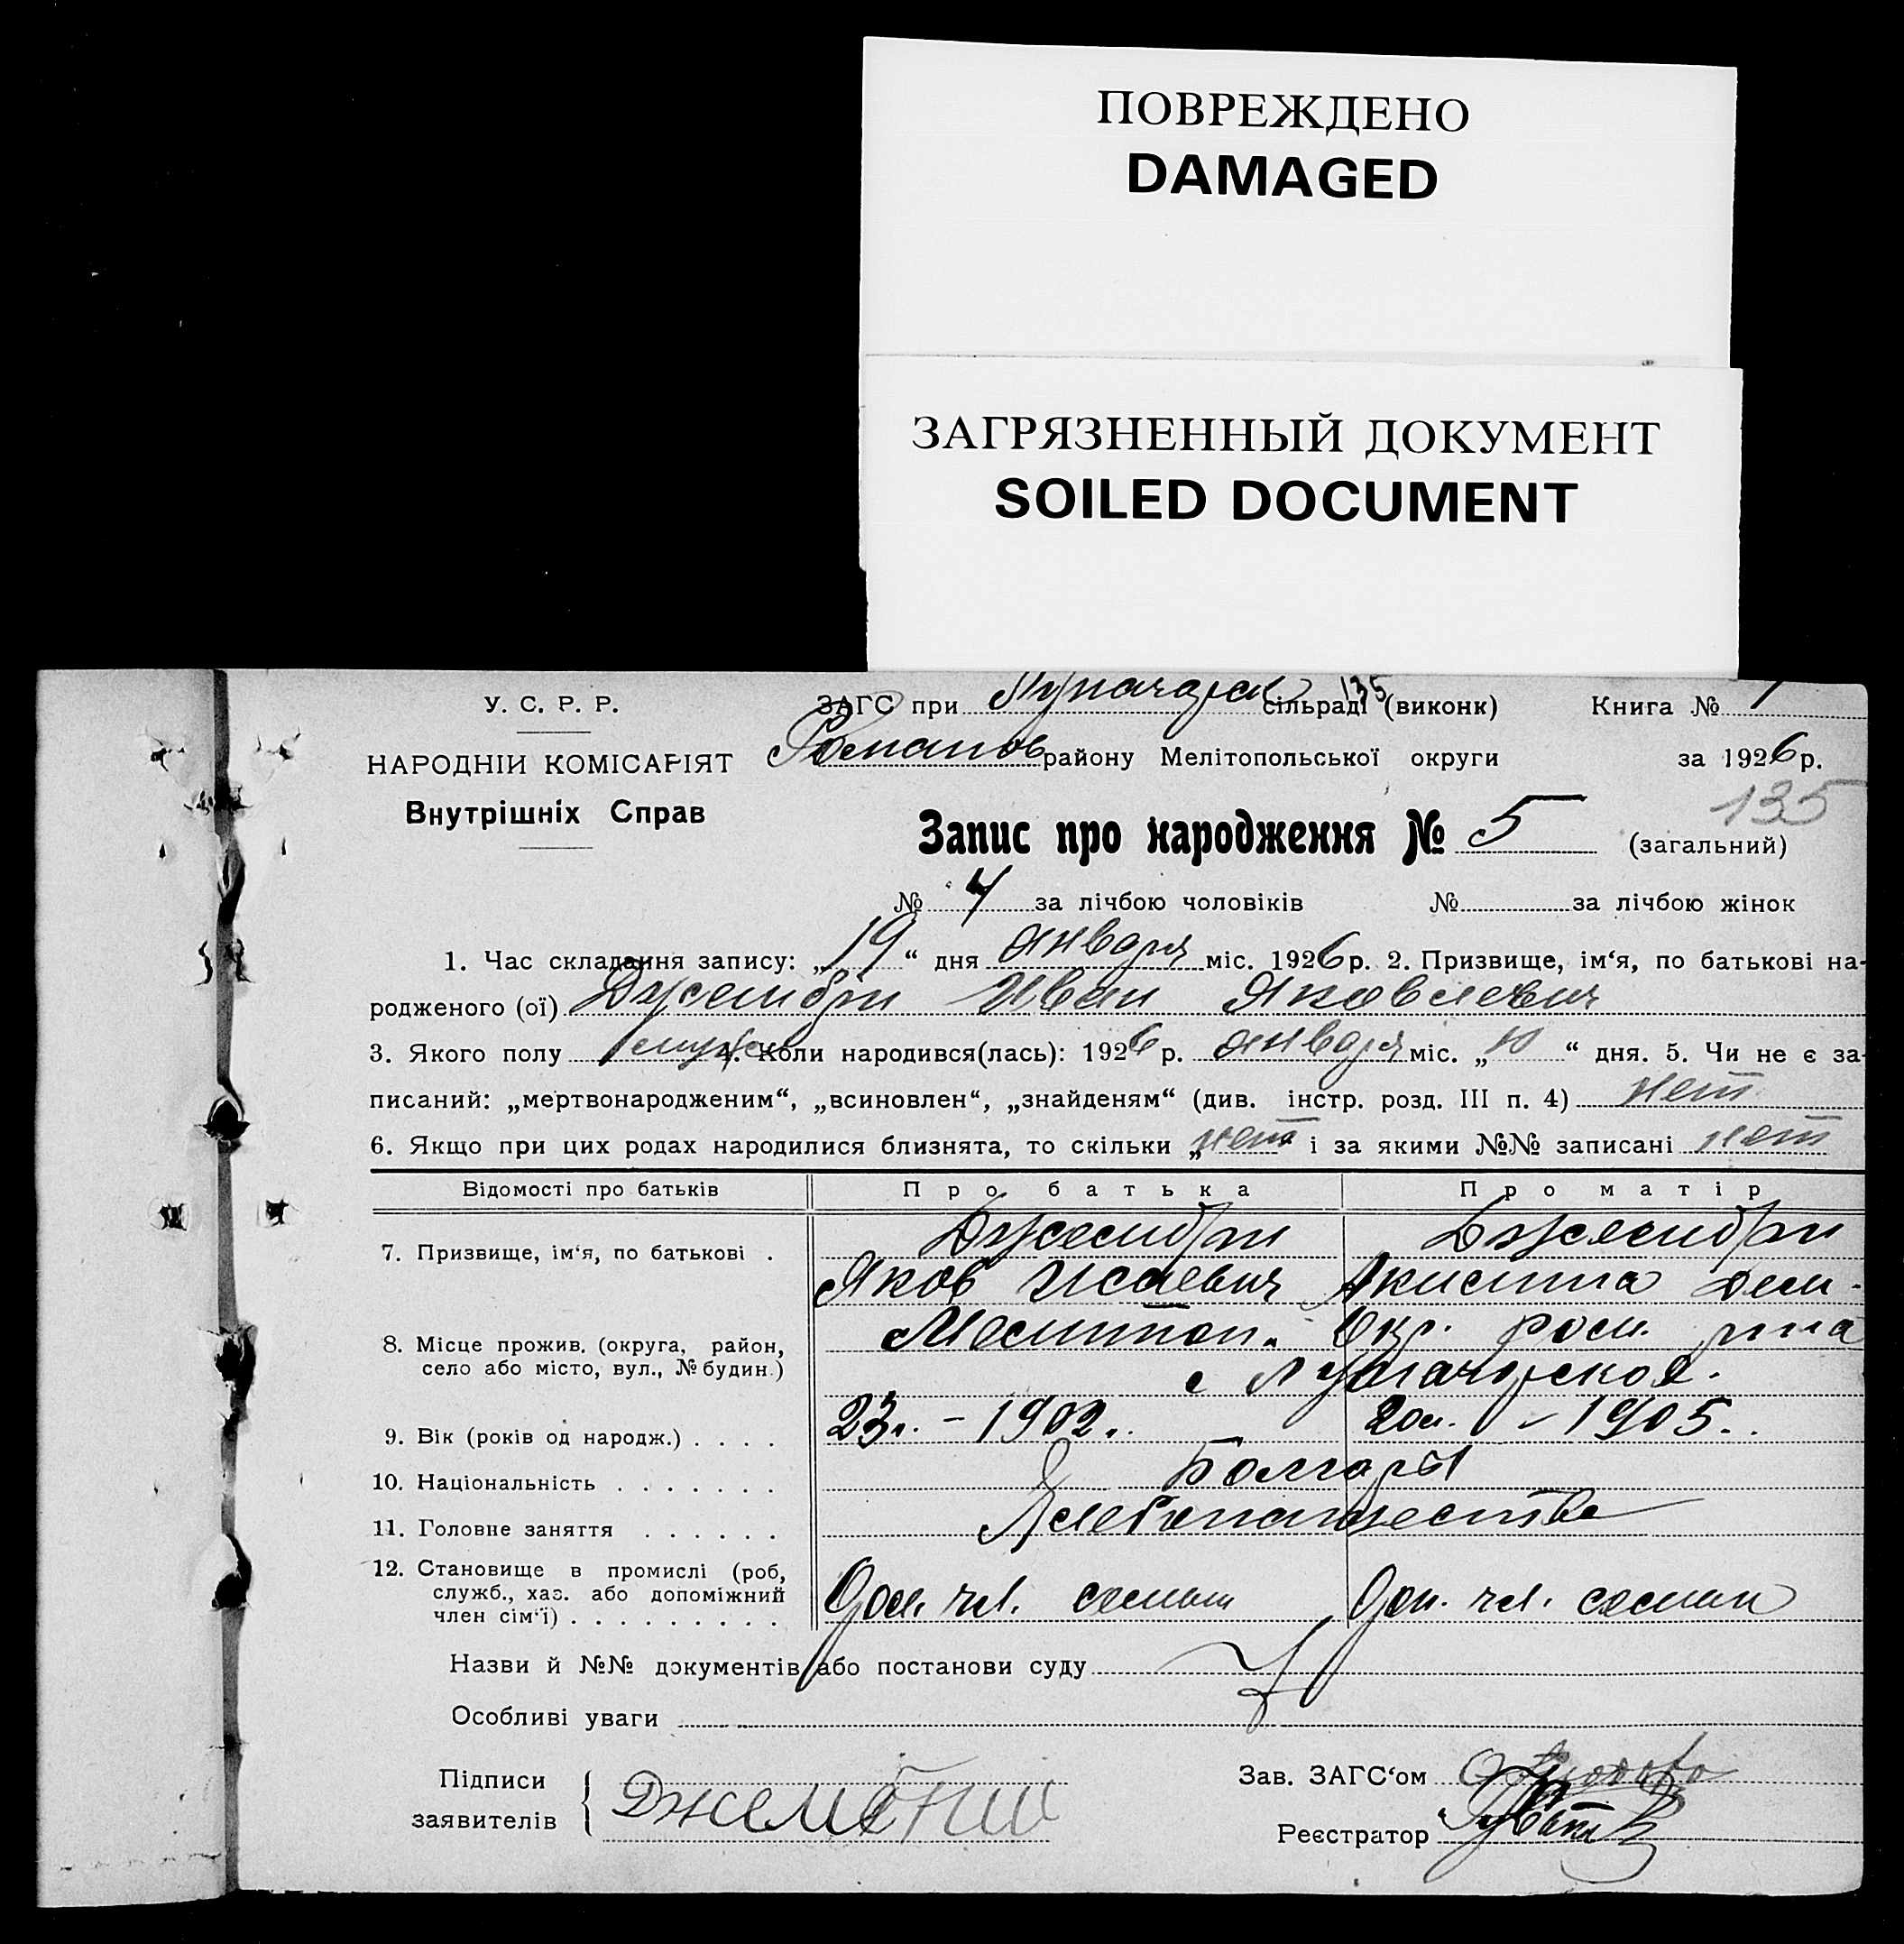 ПОВРЕЖДЕНО
DAMAGED
ЗАГРЯЗНЕННЫЙ ДОКУМЕНТ
SOILED DOCUMENT
У. С. Р. Р.
НАРОДНІЙ КОМІСАРІЯТ
Внутрішніх Справ
ЗАГС при Луначарск 135 сільраді (виконк) Книга №
Романов району Мелітопольської округи за 1926 р.
135
Запис про народження № 5 (загальний)
№ 4 за лічбою чоловіків № за лічбою жінок
1. Час складання запису: „19“ дня января міс. 1926 р. 2. Призвище, ім‘я, по батькові на-
родженого (ої) Иван Яковлевич
3. Якого полу муж 4. Коли народився(лась): 1926 р. января міс. „10“ дня. 5. Чи не є за-
писаний: „мертвонародженим“, „всиновлен“, „знайденям“ (див. інстр. розд. III п. 4) нет
6. Якщо при цих родах народилися близнята, то скільки „нет і за якими №№ записані нет
Відомості про батьків Про батька Про матір
7. Призвище, ім‘я, по батькові .
Яков Исаевич Дем.
8. Місце прожив. (округа, район,
село або місто, вул., № будин.)
Мелитоп. Окр. Ром. р-на
с Луначарское.
9. Вік (років од народж.) . . . . 23 л. – 1902. 20 л. – 1905.
10. Національність . . . . . . . Болгары
11. Головне заняття . . . . . . Хлебопашество
12. Становище в промислі (роб,
служб., хаз. або допоміжний
член сім‘ї) . . . . . . . . . Доп. чл. семьи Доп. чл. семьи
Назви й №№ документів або постанови суду
Особливі уваги
Підписи
заявителів
Зав. ЗАГС‘ом
Реєстратор